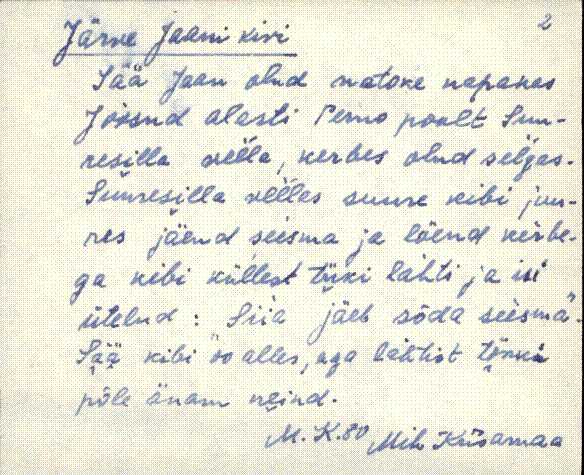 2
Järve Jaani kivi
Sää Jaan olnd natoke napakas
Jõõsnd alasti Perno poolt Suu-
resilla vella, kerbes olnd selgas.
Suuresilla velles suure kibi juu-
res jäend seisma ja lõend kerbe-
ga kibi küllest tüki lahti ja
ütelnd : Siia jäeb sõda seisma.
Sää kibi oo alles, aga lahtist
põle änam neind.
M. K. 80 Mih Küsamaa